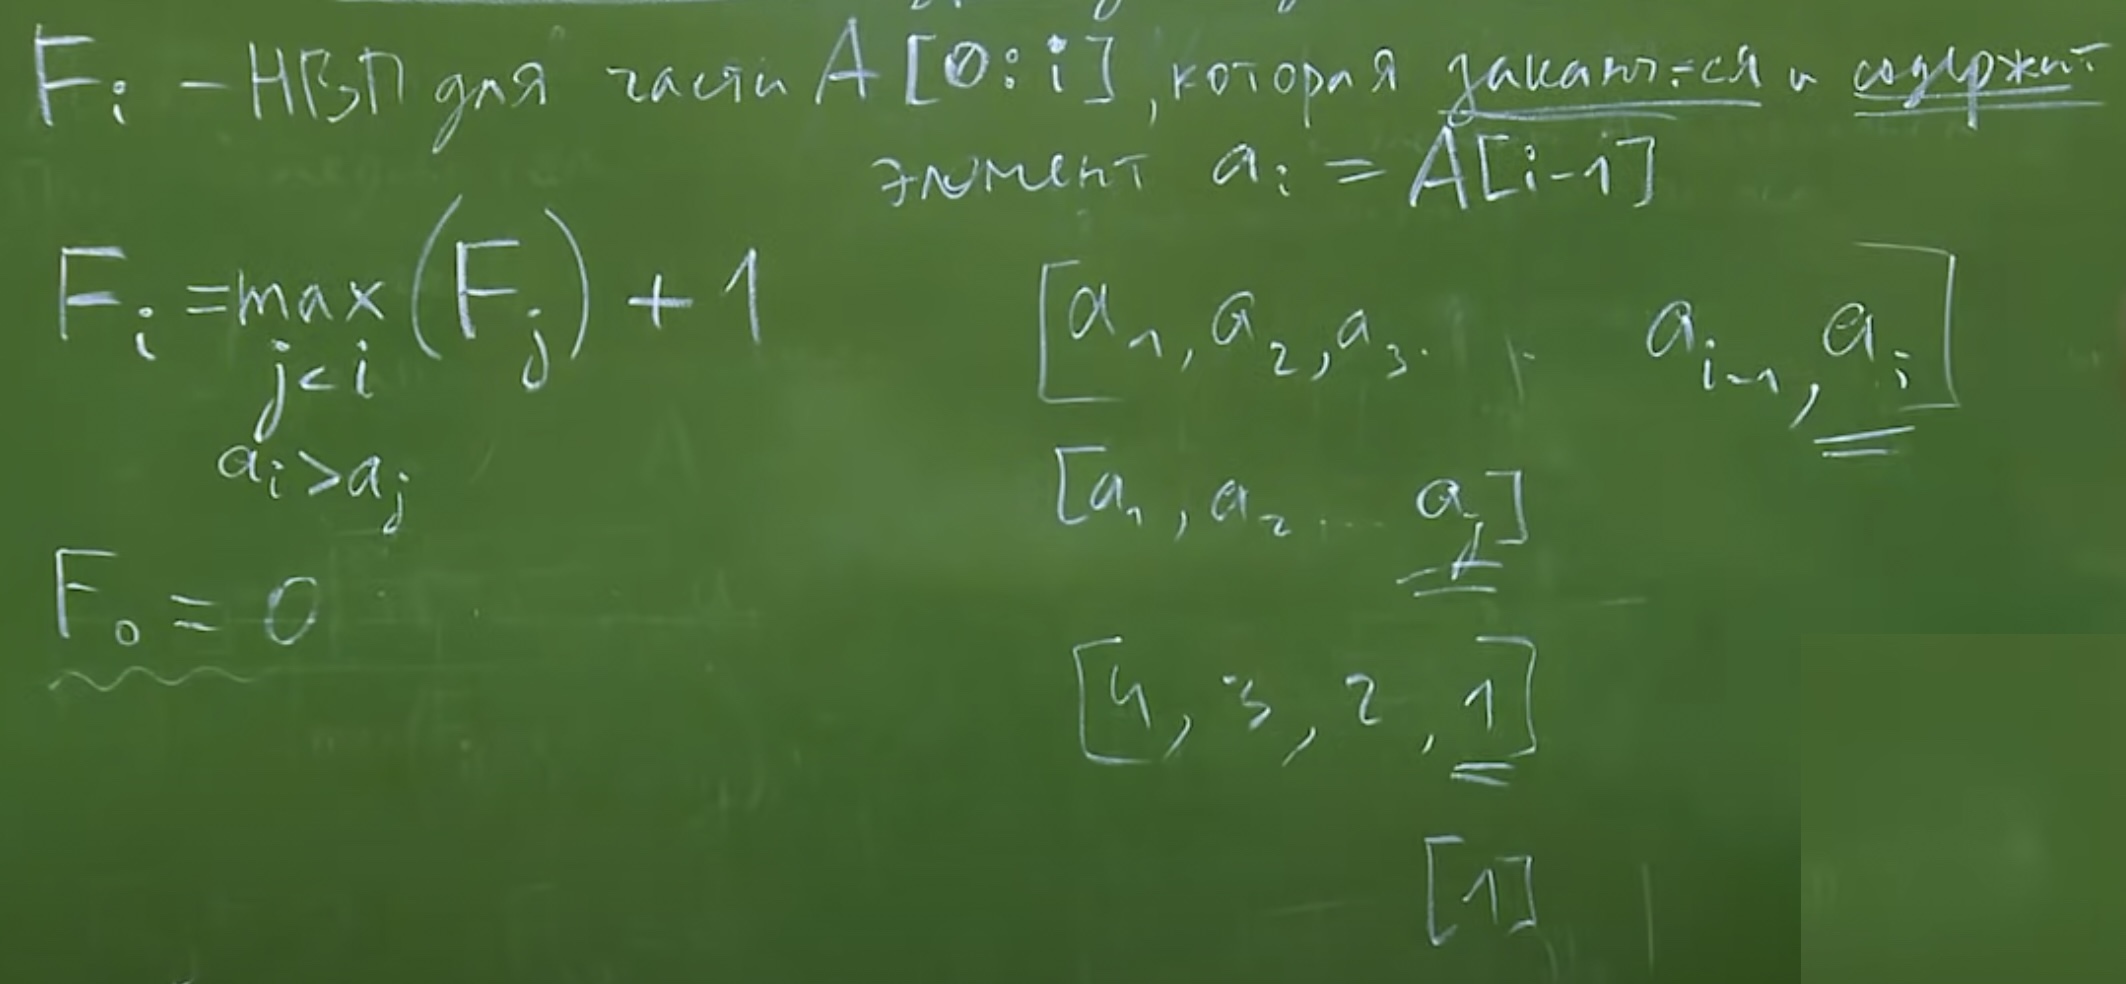 F_i - НВП для части A[0:i], которая заканч-ся и содержит
элемент a_i = A[i-1]
F_i = max (F_j) + 1
j<i
a_i > a_j
F_0 = 0
[a_1, a_2, a_3. . a_{i-1}, a_i]
[a_1, a_2 ... a_j]
[4, 3, 2, 1]
[1]